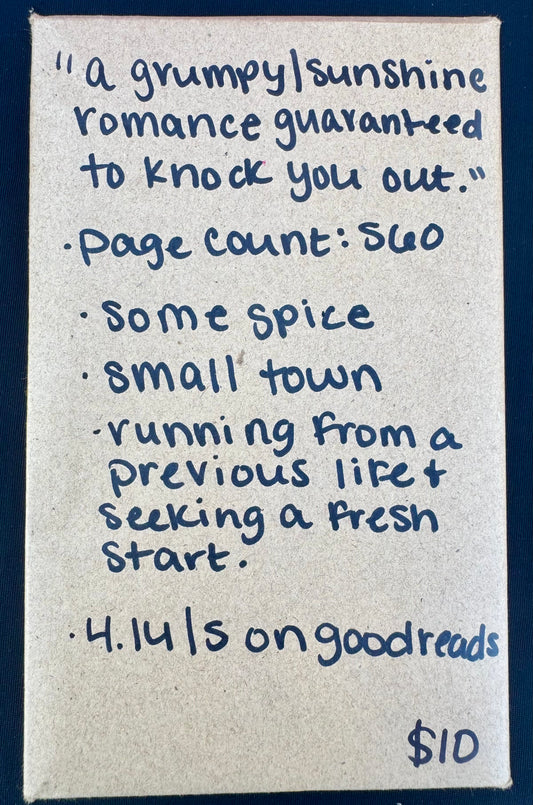 "a grumpy/sunshine
romance guaranteed
to knock you out."
· Page count: 560
· some spice
· small town
· running from a
previous life +
seeking a fresh
start.
· 4.14/5 on goodreads
$10